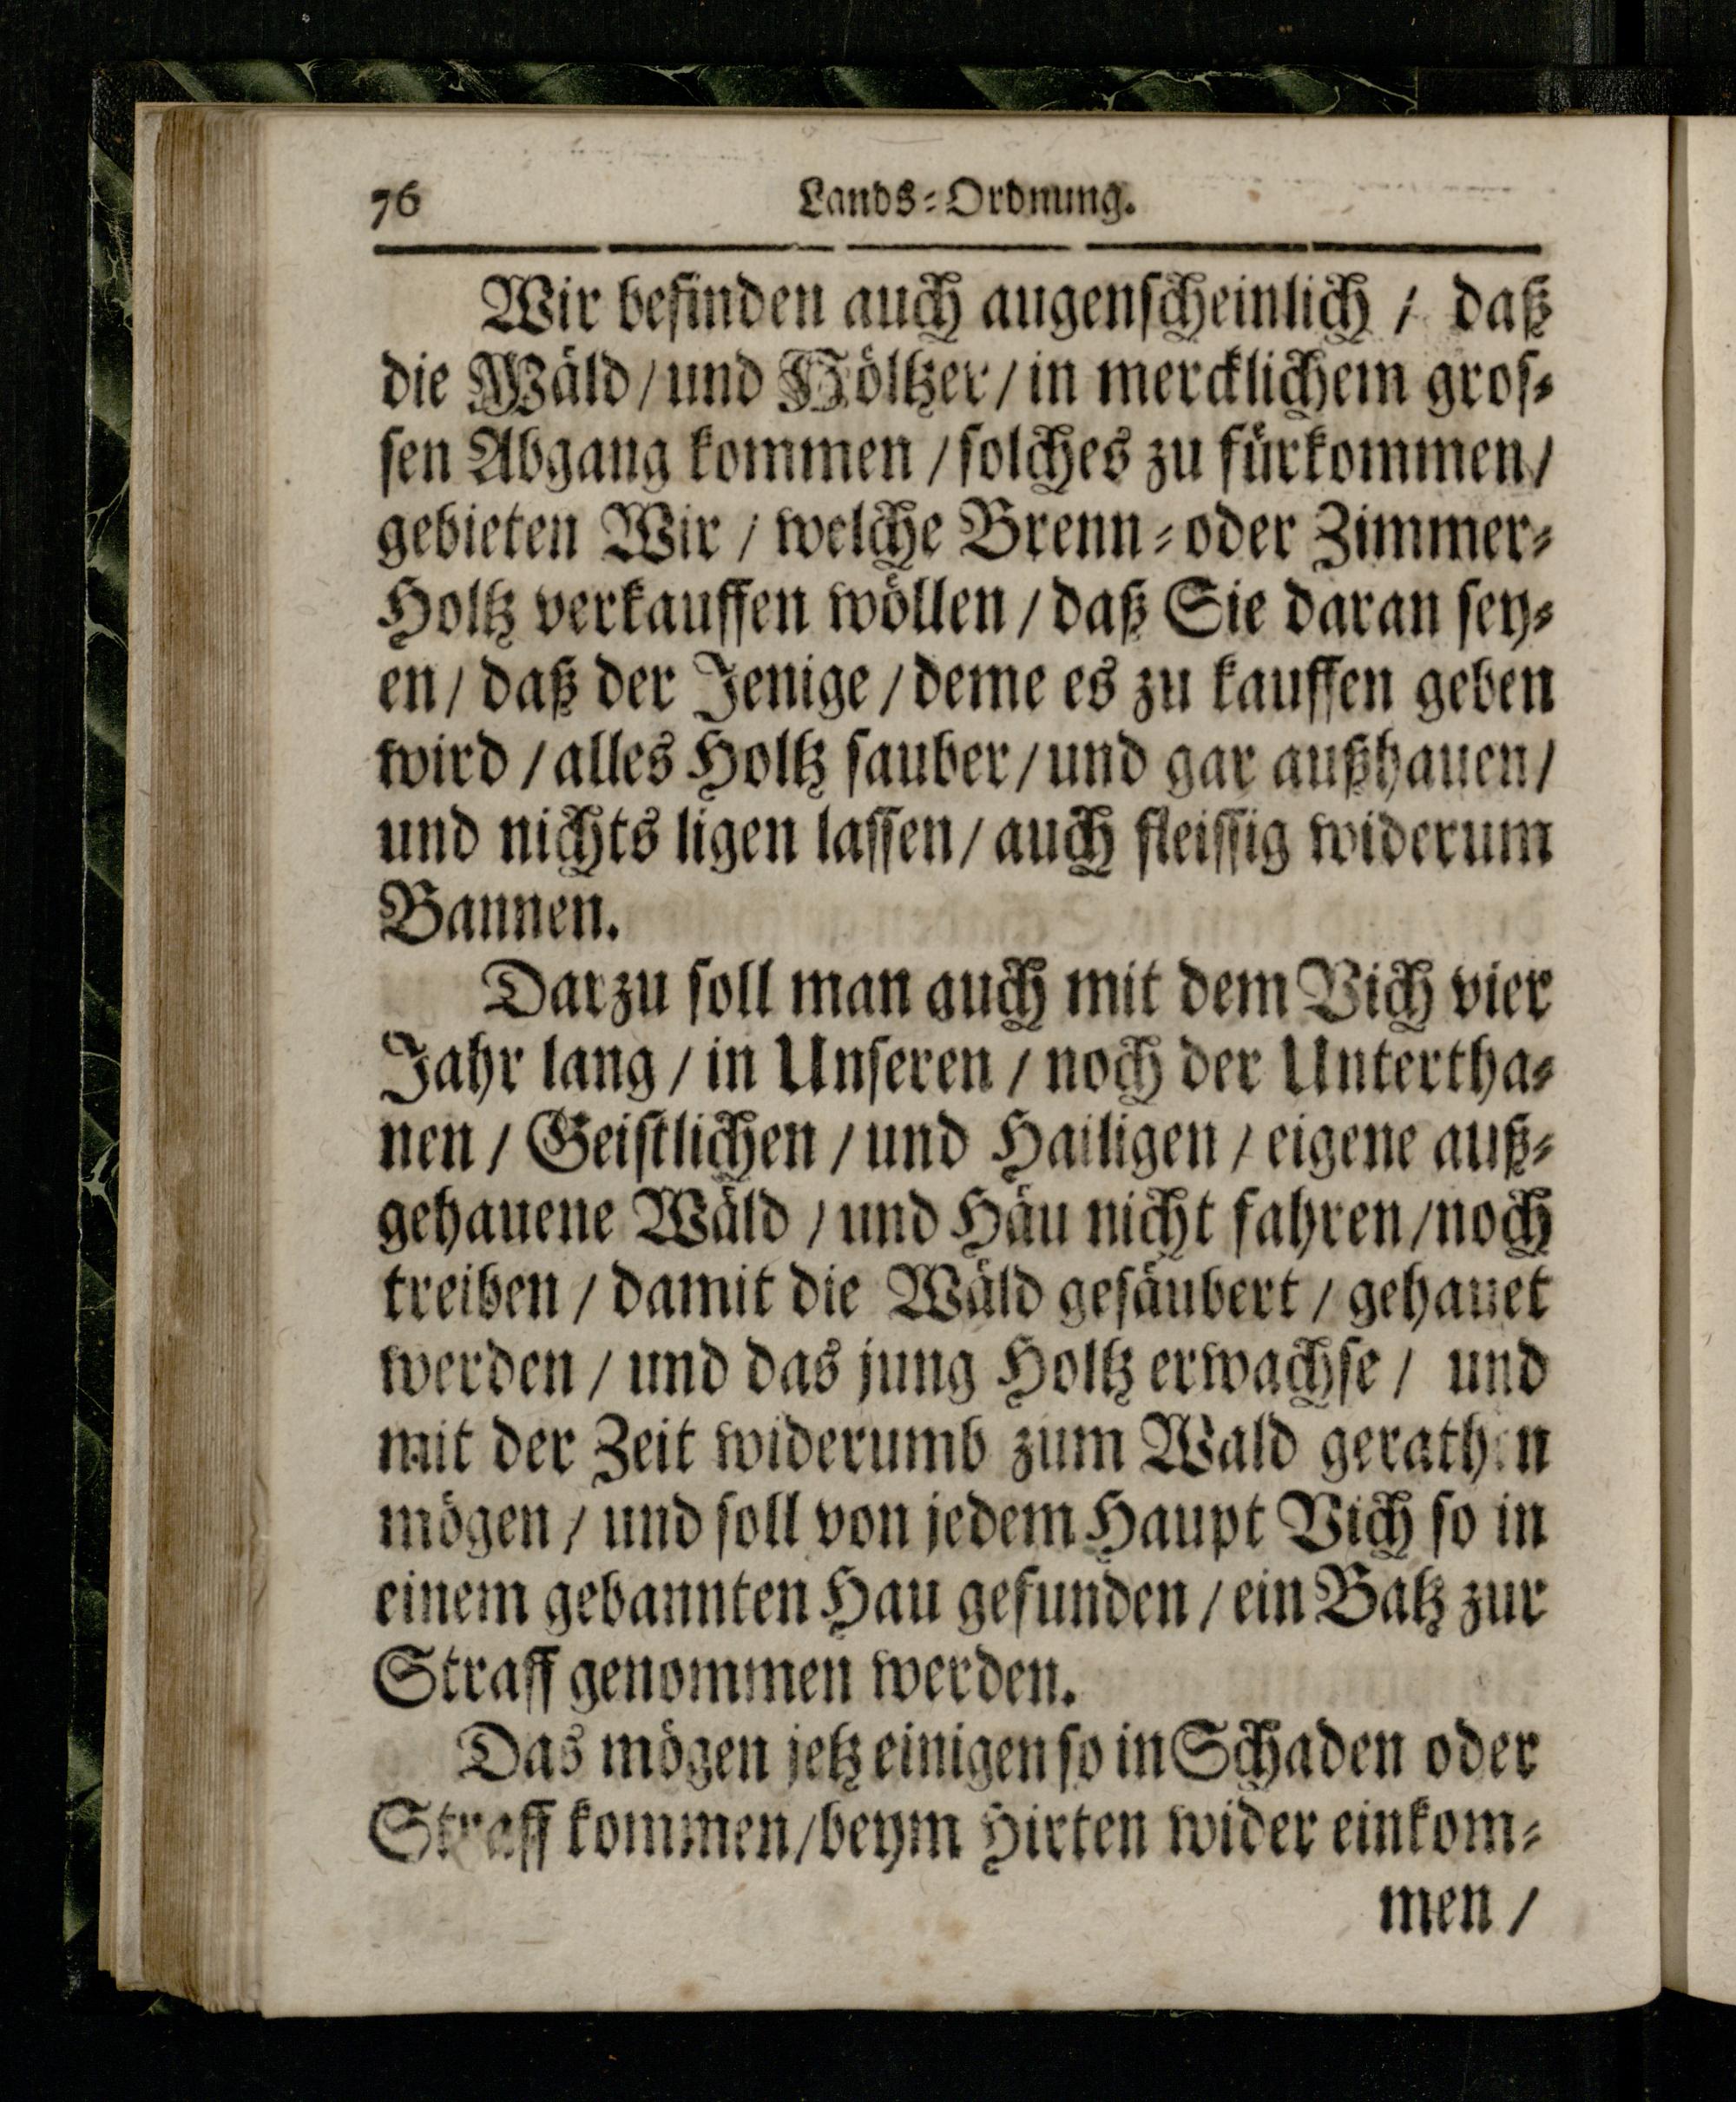 76 Lands-Ordnung.
Wir befinden auch augenscheinlich / daß
die Wäld / und Höltzer / in mercklichem gros-
sen Abgang kommen / solches zu fürkommen /
gebieten Wir / welche Brenn- oder Zimmer-
Holtz verkauffen wöllen / daß Sie daran sey-
en / daß der Jenige / deme es zu kauffen geben
wird / alles Holtz sauber / und gar außhauen /
und nichts ligen lassen / auch fleissig widerum
Bannen.
Darzu soll man auch mit dem Vich vier
Jahr lang / in Unseren / noch der Untertha-
nen / Geistlichen / und Hailigen / eigene auß-
gehauene Wäld / und Häu nicht fahren / noch
treiben / damit die Wäld gesäubert / gehauet
werden / und das jung Holtz erwachse / und
mit der Zeit widerumb zum Wald gerathen
mögen / und soll von jedem Haupt Vich so in
einem gebannten Hau gefunden / ein Batz zur
Straff genommen werden.
Das mögen jetz einigen so in Schaden oder
Straff kommen / beym Hirten wider einkom-
men /